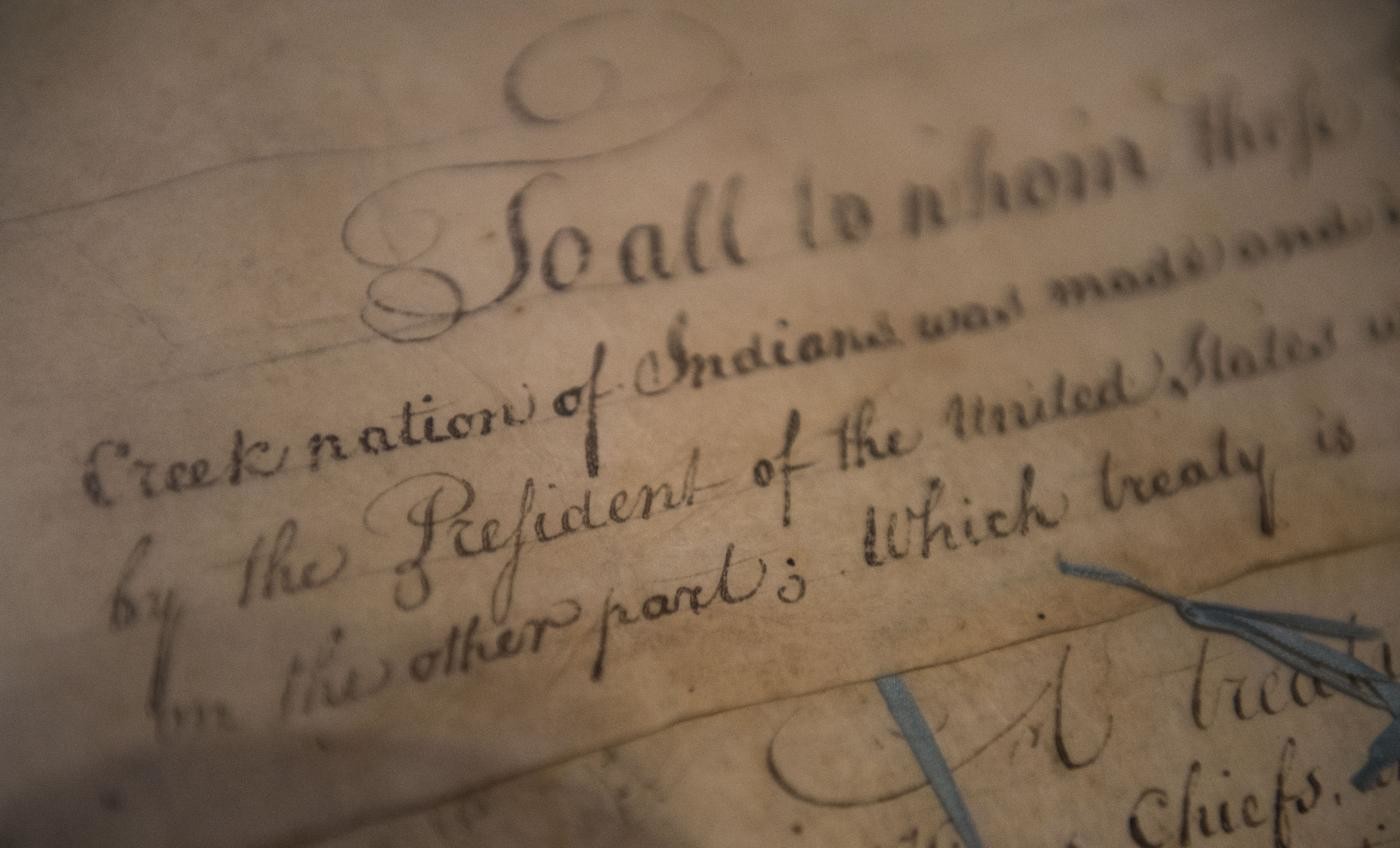 To all to whom theſe
Creek nation of Indians was made and
by the Preſident of the United States
on the other part; Which treaty is
A treaty
Chiefs,